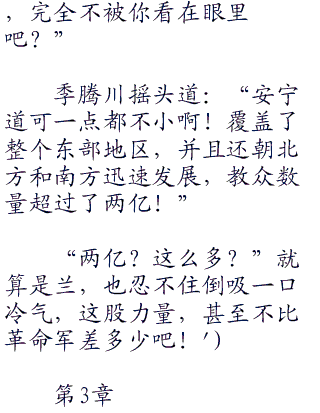 ，完全不被你看在眼里
吧？”
季腾川摇头道：“安宁
道可一点都不小啊！覆盖了
整个东部地区，并且还朝北
方和南方迅速发展，教众数
量超过了两亿！”
“两亿？这么多？”就
算是兰，也忍不住倒吸一口
冷气，这股力量，甚至不比
革命军差多少吧！')
第3章